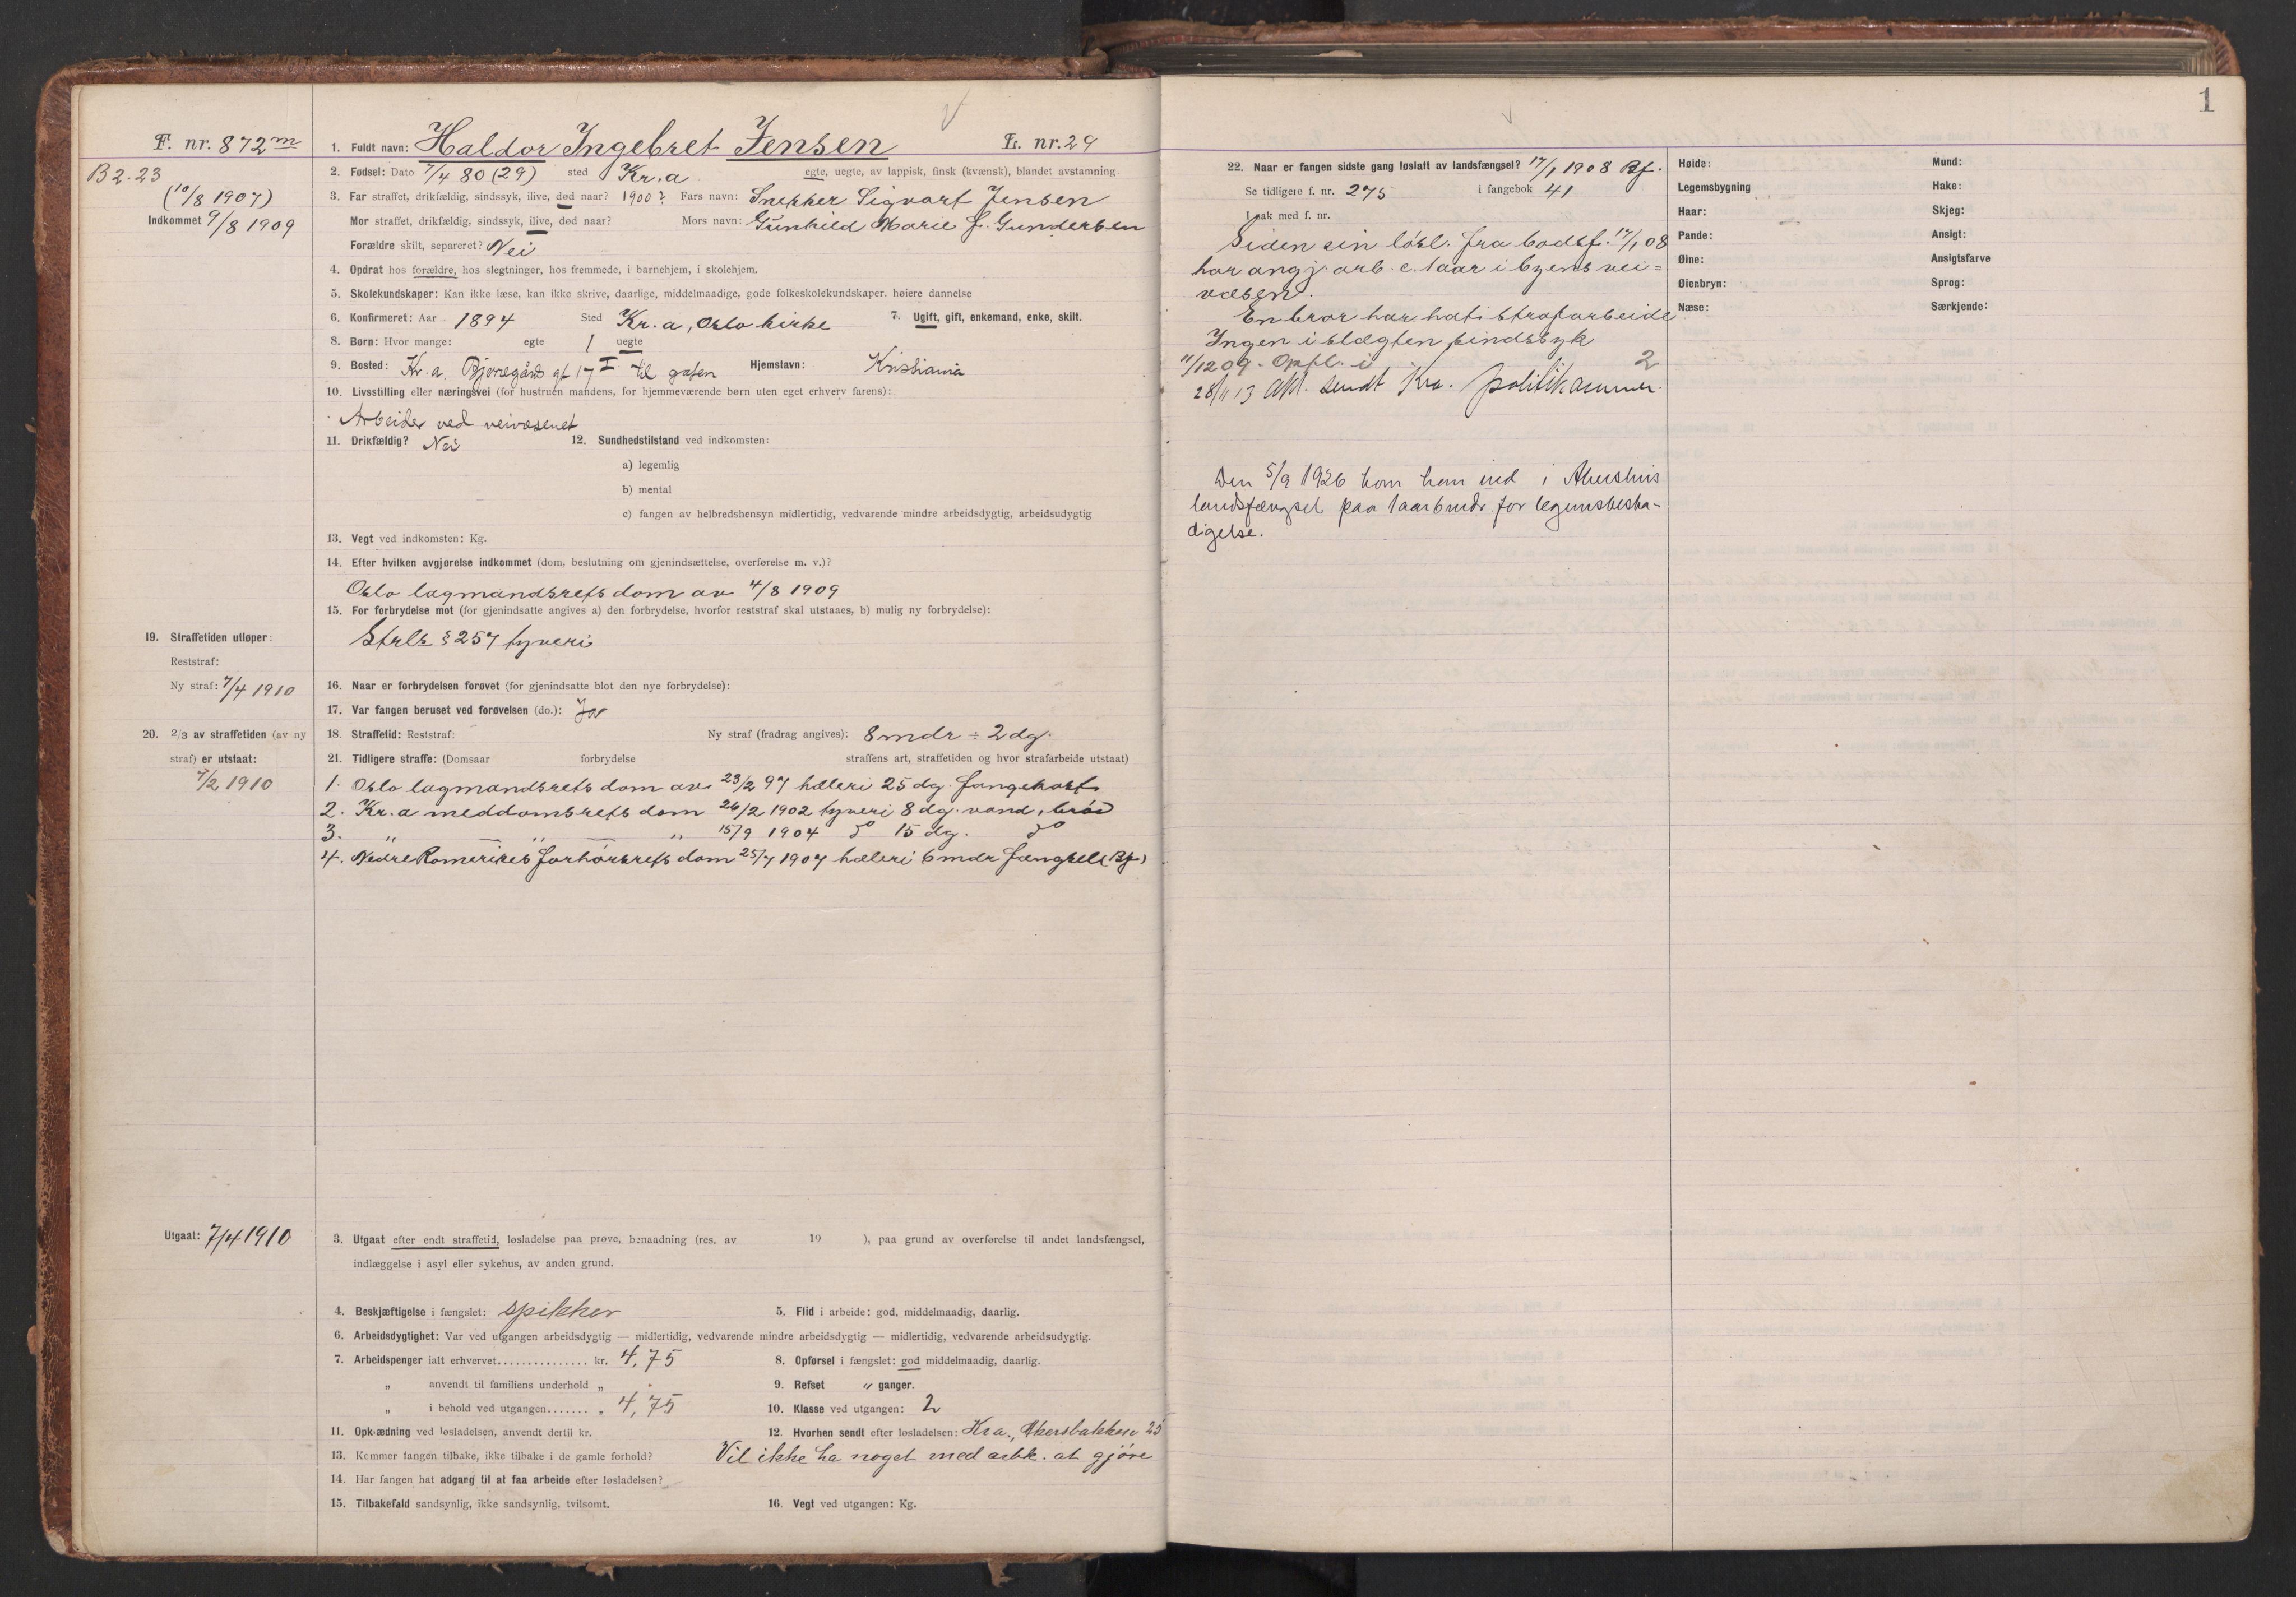 F. nr. 872 m
B 2.23
(10/8 1907)
Indkommet 9/8 1909
1. Fuldt navn: Haldor Ingebret Jensen L. nr. 29
2. Fødsel: Dato 7/4 80 (29) sted Kr.a egte, uegte, av lappisk, finsk (kvænsk), blandet avstamning
3. Far straffet, drikfældig, sindssyk, ilive, død naar? 1900? Fars navn: Snekker Sigvart Jensen
Mor straffet, drikfældig, sindssyk, ilive, død naar? Mors navn: Gunhild Marie f. Gundersen
Forældre skilt, separeret? Nei
4. Opdrat hos forældre, hos slegtninger, hos fremmede, i barnehjem, i skolehjem.
5. Skolekundskaper: Kan ikke læse, kan ikke skrive, daarlige, middelmaadige, gode folkeskolekundskaper. høiere dannelse
6. Konfirmeret: Aar 1894 Sted Kr.a, Oslo kirke 7. Ugift, gift, enkemand, enke, skilt.
8. Børn: Hvor mange: egte 1 uegte
9. Bosted: Kr.a. Bjerregårds gt 17 I til gaten Hjemstavn: Kristiania
10. Livsstilling eller næringsvei (for hustruen mandens, for hjemmeværende børn uten eget erhverv farens):
Arbeider ved veivæsenet
11. Drikfældig? Nei 12. Sundhedstilstand ved indkomsten:
a) legemlig
b) mental
c) fangen av helbredshensyn midlertidig, vedvarende mindre arbeidsdygtig, arbeidsudygtig
13. Vegt ved indkomsten: Kg.
14. Efter hvilken avgjørelse indkommet (dom, beslutning om gjenindsættelse, overførelse m. v.)?
Oslo lagmandsrets dom av 4/8 1909
15. For forbrydelse mot (for gjenindsatte angives a) den forbrydelse, hvorfor reststraf skal utstaaes, b) mulig ny forbrydelse):
Strl. § 257 tyveri
19. Straffetiden utløper:
Reststraf:
Ny straf: 7/4 1910
16. Naar er forbrydelsen forøvet (for gjenindsatte blot den nye forbrydelse):
17. Var fangen beruset ved forøvelsen (do.): Ja
20. 2/3 av straffetiden (av ny
straf) er utstaat:
7/2 1910
18. Straffetid: Reststraf: Ny straf (fradrag angives): 8 mdr ÷ 2 dg.
21. Tidligere straffe: (Domsaar forbrydelse straffens art, straffetiden og hvor strafarbeide utstaat)
1. Oslo lagmandsrets dom av 23/2 97 hæleri 25 dg. fangekost
2. Kr.a meddomsrets dom 26/2 1902 tyveri 8 dg. vand, brød
3. " — " — " 15/9 1904 do 15 dg. do
4. Nedre Romerikes forhørsrets dom 25/7 1907 hæleri 6 mdr fængsel (Bf)
Utgaat: 7/4 1910
3. Utgaat efter endt straffetid, løsladelse paa prøve, benaadning (res. av 19 ), paa grund av overførelse til andet landsfængsel,
indlæggelse i asyl eller sykehus, av anden grund.
4. Beskjæftigelse i fængslet: spikker 5. Flid i arbeide: god, middelmaadig, daarlig.
6. Arbeidsdygtighet: Var ved utgangen arbeidsdygtig — midlertidig, vedvarende mindre arbeidsdygtig — midlertidig, vedvarende arbeidsudygtig.
7. Arbeidspenger ialt erhvervet............... kr. 4,75 8. Opførsel i fængslet: god middelmaadig, daarlig.
" anvendt til familiens underhold „ 9. Refset " ganger.
" i behold ved utgangen....... „ 4,75 10. Klasse ved utgangen: 2
11. Opklædning ved løsladelsen, anvendt dertil kr. 12. Hvorhen sendt efter løsladelsen: Kra., Akersbakken 25
13. Kommer fangen tilbake, ikke tilbake i de gamle forhold? Vil ikke ha noget med at gjøre
14. Har fangen hat adgang til at faa arbeide efter løsladelsen?
15. Tilbakefald sandsynlig, ikke sandsynlig, tvilsomt. 16. Vegt ved utgangen: Kg.
1
22. Naar er fangen sidste gang løslatt av landsfængsel? 17/1 1908 Bf.
Se tidligere f. nr. 275 i fangebok 41
I sak med f. nr.
Siden sin løsl. fra bodsf. 17/1 08
har angj. arb. c. 1 aar i byens vei=
væsen.
En bror har hat strafarbeide
Ingen i slægten sindssyk
11/12 09. Opfl. i 2
28/11 13 Akt. sendt Kra. politikammer.
Den 5/9 1926 kom han ind i Akershus
landsfængsel paa 1 aar 6 mdr for legemsbeska-
digelse.
Høide: Mund:
Legemsbygning Hake:
Haar: Skjeg:
Pande: Ansigt:
Øine: Ansigtsfarve
Øienbryn: Sprog:
Næse: Særkjende: